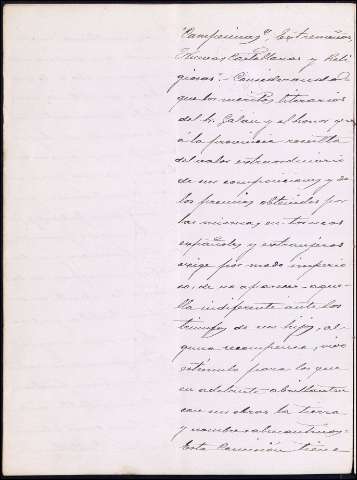 "Campesinas", Extremeñas,
Nuevas Castellanas y Reli
giosas".- Considerando
que los méritos literarios
del Sr. Galán y el honor que
á la provincia resulta
del valor extraordinario
de sus composiciones y de
los premios obtenidos por
las mismas, en torneos
españoles y extranjeros
exige por modo imperio
so, de no aparecer aque-
lla indiferente ante los
triunfos de sus hijos, al-
guna recompensa, vivo
estímulo para los que
en adelante abrillanten
con sus obras la tierra
y nombre salmantinos.-
Esta Comisión tiene